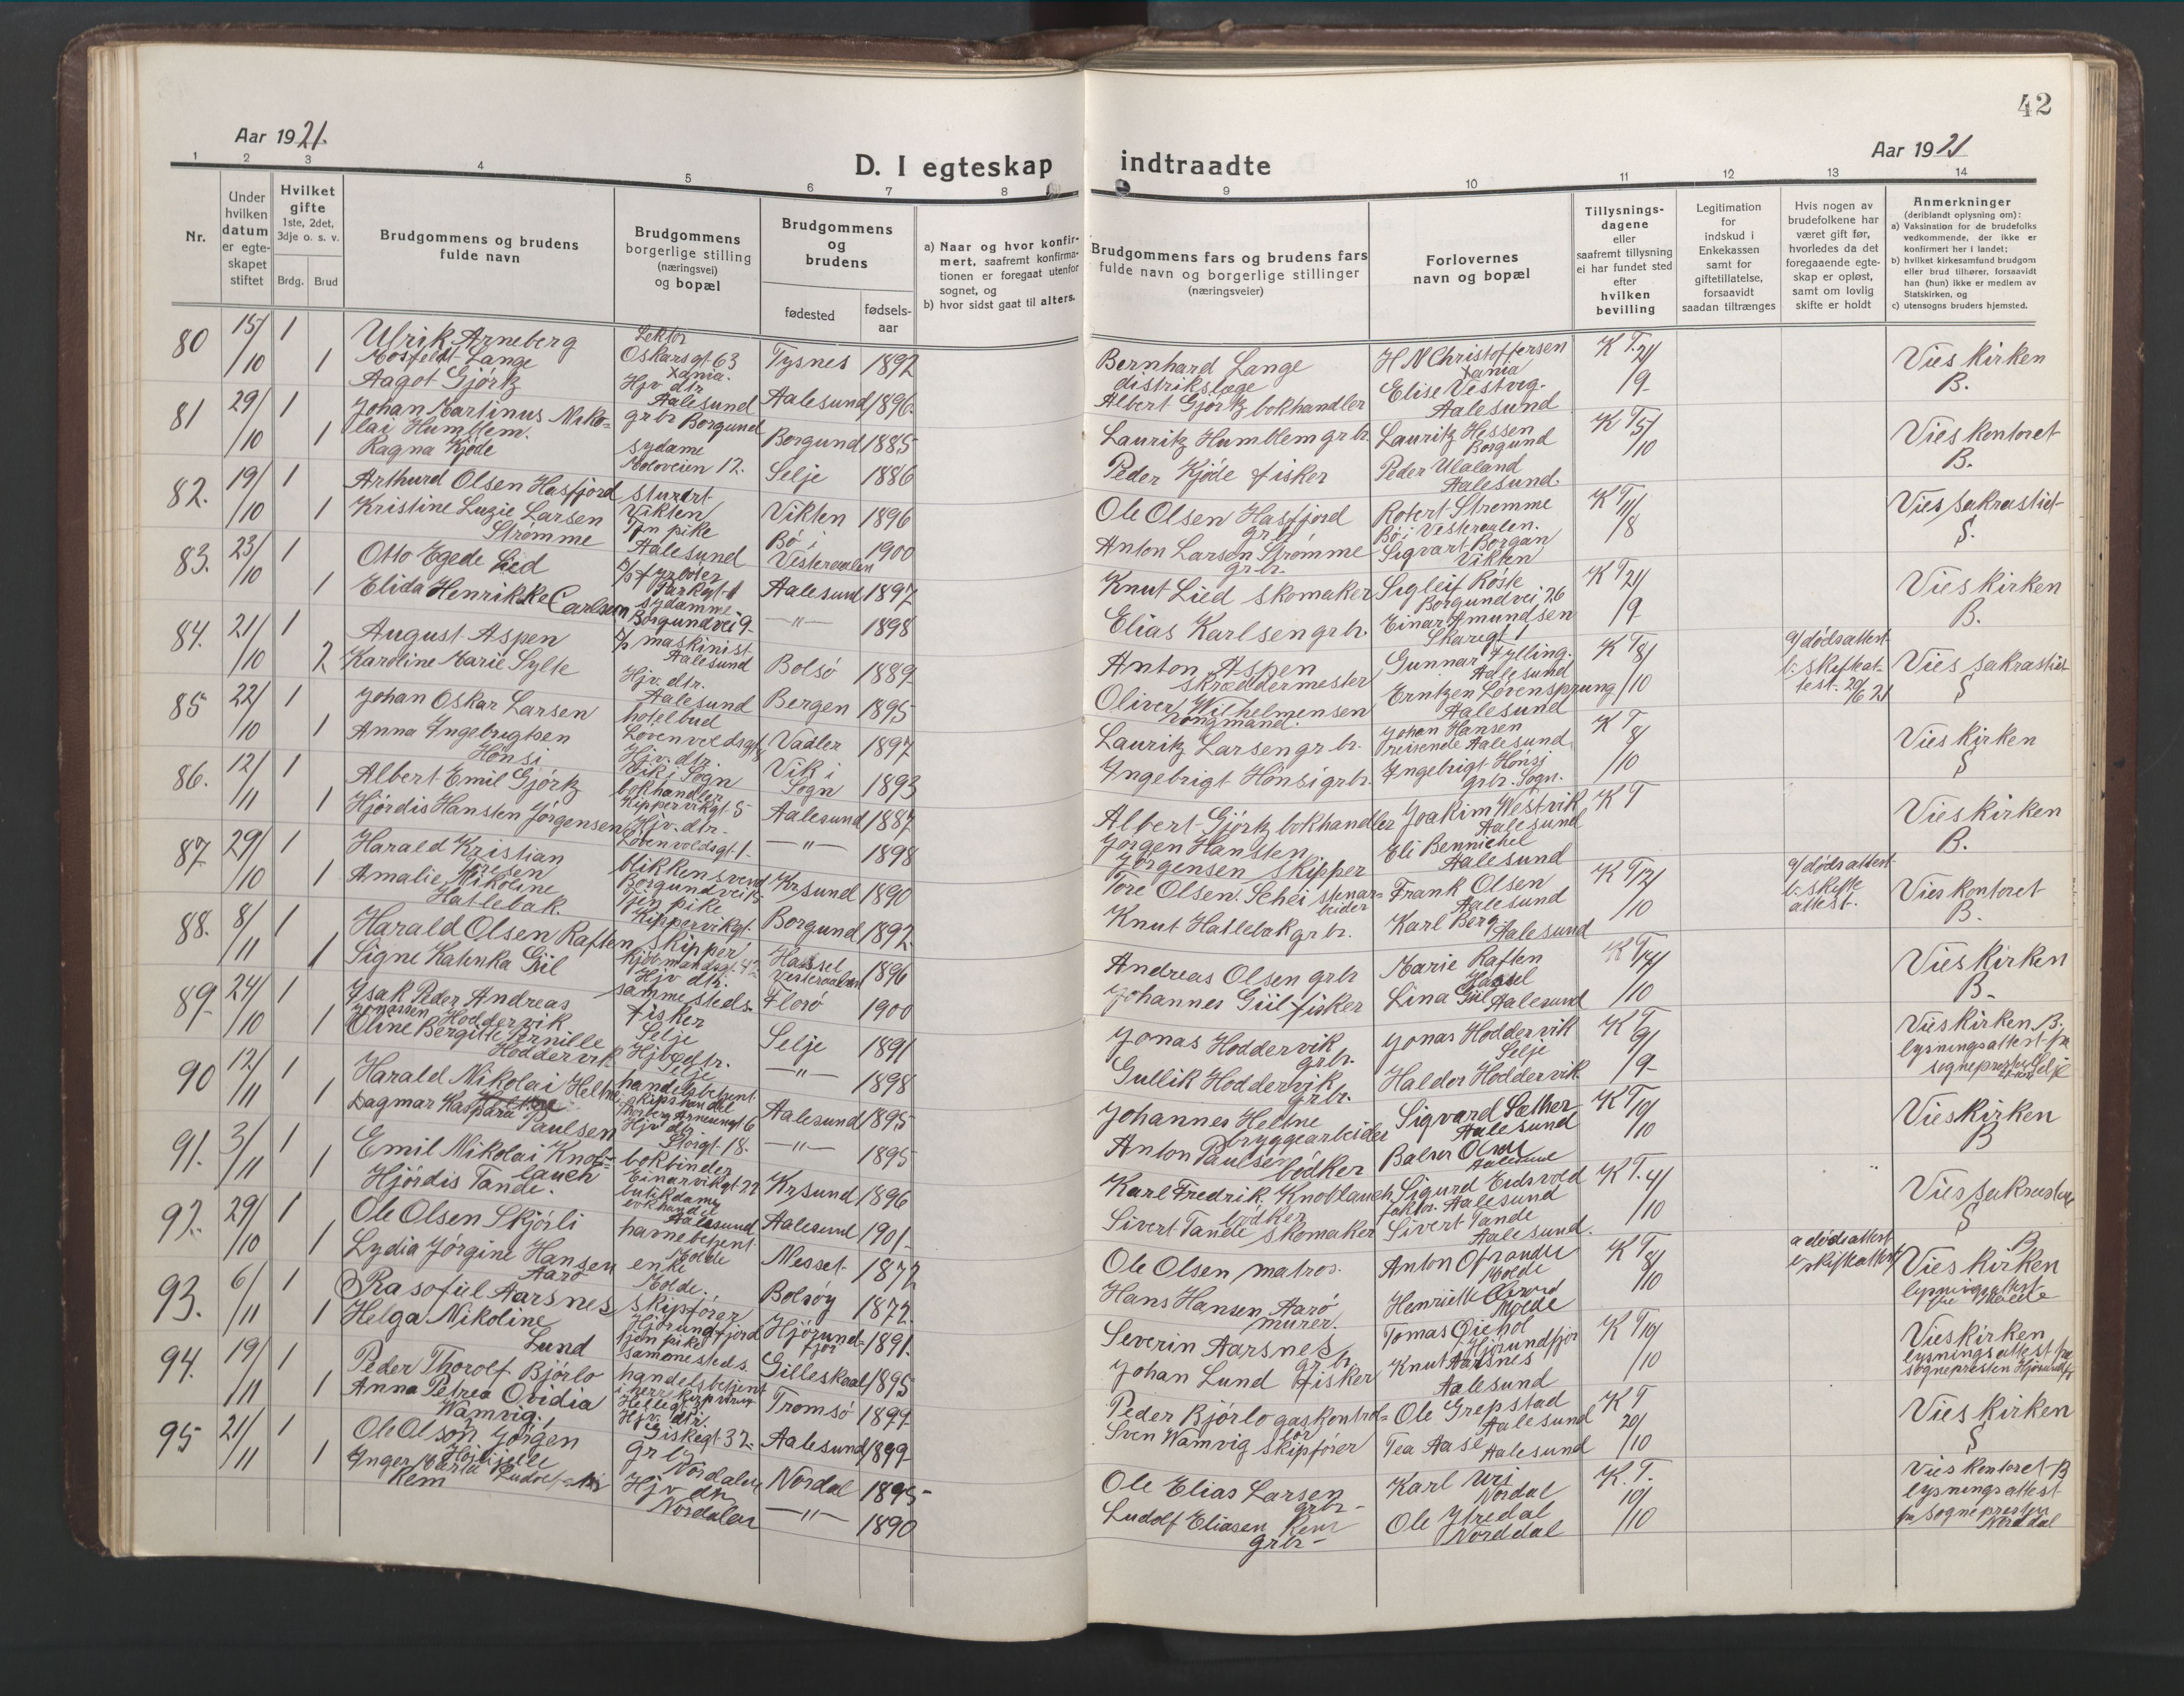 42
Aar 1921.
D. I egteskap indtraadte
Aar 1921
1 2 3 4 5 6 7 8 9 10 11 12 13 14
Nr.
Under hvilken datum er egteskapet stiftet
Hvilket gifte
1ste, 2det, 3dje o. s. v.
Brdg. Brud
Brudgommens og brudens fulde navn
Brudgommens borgerlige stilling (næringsvei) og bopæl
Brudgommens og brudens
fødested
fødselsaar
a) Naar og hvor konfirmert, saafremt konfirmationen er foregaat utenfor sognet, og
b) hvor sidst gaat til alters.
Brudgommens fars og brudens fars fulde navn og borgerlige stillinger (næringsveier)
Forlovernes navn og bopæl
Tillysningsdagene eller saafremt tillysning ei har fundet sted efter hvilken bevilling
Legitimation for indskud i Enkekassen samt for giftetillatelse, forsaavidt saadan tiltrænges
Hvis nogen av brudefolkene har været gift før, hvorledes da det foregaaende egteskap er opløst, samt om lovlig skifte er holdt
Anmerkninger
(deriblandt oplysning om):
a) Vaksination for de brudefolks vedkommende, der ikke er konfirmert her i landet;
b) hvilket kirkesamfund brudgom eller brud tilhører, forsaavidt han (hun) ikke er medlem av Statskirken, og
c) utensogns bruders hjemsted.
80 15/10 1 Ulrik Arneberg Mosfeldt Lange Lektor Oskarsgt 63 Xania. Tysnes 1892 Bernhard Lange distrikslæge H N Christoffersen Xania K T. 21/9 Vies kirken B.
1 Aagot Gjörtz Hjv dtr Aalesund Aalesund 1896. Albert Gjörtz bokhandler Elise Vestvig. Aalesund
81 29/10 1 Johan Martinus Nikolai Humblem. grbr Borgund Borgund 1885 Lauritz Humblem grbr. Lauritz Hessen Borgund K T 5/10 Vies kontoret B.
1 Ragna Kjöde sydame Moloveien 12. Selje 1886 Peder Kjöde fisker Peder Ulaland Aalesund.
82. 19/10 1 Arthurd Olsen Hasfjord Vikten Vikten 1896 Ole Olsen Hasfjord grbr Robert Strømme Bö i Vesteraalen. K T 11/8 Vies sakrastiet S.
1 Kristine Luzie Larsen Strømme Tjn pike Aalesund Bö i Vesteraalen 1900 Anton Larsen Strømme gr.br. Sigvart Borgan Vikten
83. 23/10 1 Otto Egede Lied D/S fyrböter Parkgt 1 Aalesund 1897 Knut Lied skomaker Sigleif Röste Borgundvei 26 K T 21/9 Vies kirken B.
1 Elida Henrikke Carlsen sydamme Borgundvei 9 —"— 1898 Elias Karlsen grbr. Einar Amundsen Skaregt 1
84. 21/10 1 August Aspen D/S maskinist Aalesund Bolsö 1889 Anton Aspen skræddermester Gunnar Fylling. Aalesund K T 8/10 a/ dödsattest b: skifteattest. 20/6 21 Vies sakrastiet S
2 Karoline Marie Sylte Hjv. dtr. Aalesund Bergen 1895 Oliver Wilhelmensen Erntzen Lövensprung Aalesund
85 22/10 1 Johan Oskar Larsen hotelbud Lovenvoldsgt Vadler 1897 Lauritz Larsen gr br. Johan Hansen reisende Aalesund K T 8/10 Vies kirken S
1 Anna Ingebrigtsen Hönsi Hjv. dtr. Vik i Sogn Vik i Sogn 1893 Ingebrigt Hönsi grbr. Ingebrigt Hönsi grbr. Sogn.
86. 12/11 1 Albert Emil Gjörtz bokhandler Kippervikgt 5 Aalesund 1887 Albert Gjörtz bokhandler Joakim Westvik Aalesund K T Vies kirken B.
1 Hjördis Hansten Jörgensen Hjv. dtr. Lövenvoldsgt 1. —"— 1898 Jörgen Hansten Jörgensen skipper Eli Bennichel Aalesund
87 29/10 1 Harald Kristian Toresen blikkensvend Borgundvei Krsund 1890 Tore Olsen. Schei stenarbeider Frank Olsen Aalesund K T 12/10 a/ dödsattest b: skifte attest. Vies kontoret B.
1 Amalie Nikoline Hatlebak. Tjen pike Kippervikgt. Borgund 1892 Knut Hatlebak gr br. Karl Berg Aalesund
88. 8/11 1 Harald Olsen Raften skipper Kjöbmandsgt. 42 Hassel Vesteraalen 1896 Andreas Olsen grbr Marie Raften Hassel K T 14/10 Vies kirken B.
1 Signe Katinka Giil Hjv dtr. sammesteds. Florö 1900 Johannes Giil fisker Lina Giil Aalesund
89 24/10 1 Isak Peder Andreas Jonassen Hoddervik fisker Selje Selje 1891 Jonas Hoddervik grbr. Jonas Hoddervik Selje K T 9/9 Vies kirken B. lysningsattest fra sognepresten Selje
1 Oline Bergitte Pernille Hoddervik Hjv dtr. Selje —"— 1898 Gullik Hoddervik grbr. Halder Hoddervik
90 12/11 1 Harald Nikolai Heltne handelsbetjent skipshandel Aalesund 1895 Johannes Heltne bryggearbeider Sigvard Sæther Aalesund K T 10/10 Vies kirken B
1 Dagmar Kaspara Paulsen Hjv dtr Storgt 18. —"— 1895 Anton Paulsen bödker Balser Olsen Aalesund
91. 3/11 1 Emil Mikolai Knoblauch bokbinder Einarvikgt. 22 Krsund 1896 Karl Fredrik. Knoblauch bödker Sigurd Eidsvold faktor. Aalesund K T. 4/10 Vies sakrastiet S
1 Hjördis Tande. butikdame bokhandel Aalesund Aalesund 1901 Sivert Tande skomaker Sivert Tande Aalesund.
92. 29/10 1 Ole Olsen Skjörli havnebetjent Molde Nesset 1872 Ole Olsen matros. Anton Molde K T 8/10 a dödsattest b skifteattest B Vies kirken lysningsattest fra Molde
1 Lydia Jörgine Hansen Aarö enke Molde. Bolsöy 1872. Hans Hansen Aarö murer. Henriette Molde
93. 6/11 1 Rasofiel Aarsnes skipsförer Hjörundfjord Hjörundfjor 1891 Severin Aarsnes grbr. Tomas Öiehol Hjörundfjor K T 10/10 Vies kirken lysningsattest fra sognepresten Hjörundfj
1 Helga Nikoline Lund tjen pike sammesteds. Gilleskaal 1895 Johan Lund fisker Knut Aarsnes Aalesund
94. 19/11 1 Peder Thorolf Björlo handelsbetjent Tromsö 1899 Peder Björlo gaskontrollör Ole Grepstad Aalesund K T 20/10 Vies kirken S
1 Anna Petrea Ovidia Wamvig. Hjv. dtr. Giskegt 32. Aalesund 1899 Sven Wamvig skipsförer Tea Aase Aalesund
95 21/11 1 Ole Olson Jörgen grbr Nordalen Nordal 1895 Ole Elias Larsen grbr- Karl Uri Nordal K. T. 10/10 Vies kontoret B lysningsattest fra sognepresten Norddal
1 Inger Rem Hjv dtr Nordalen —"— 1890 Ludolf Eliasen Rem grbr- Ole Ytredal Norddal